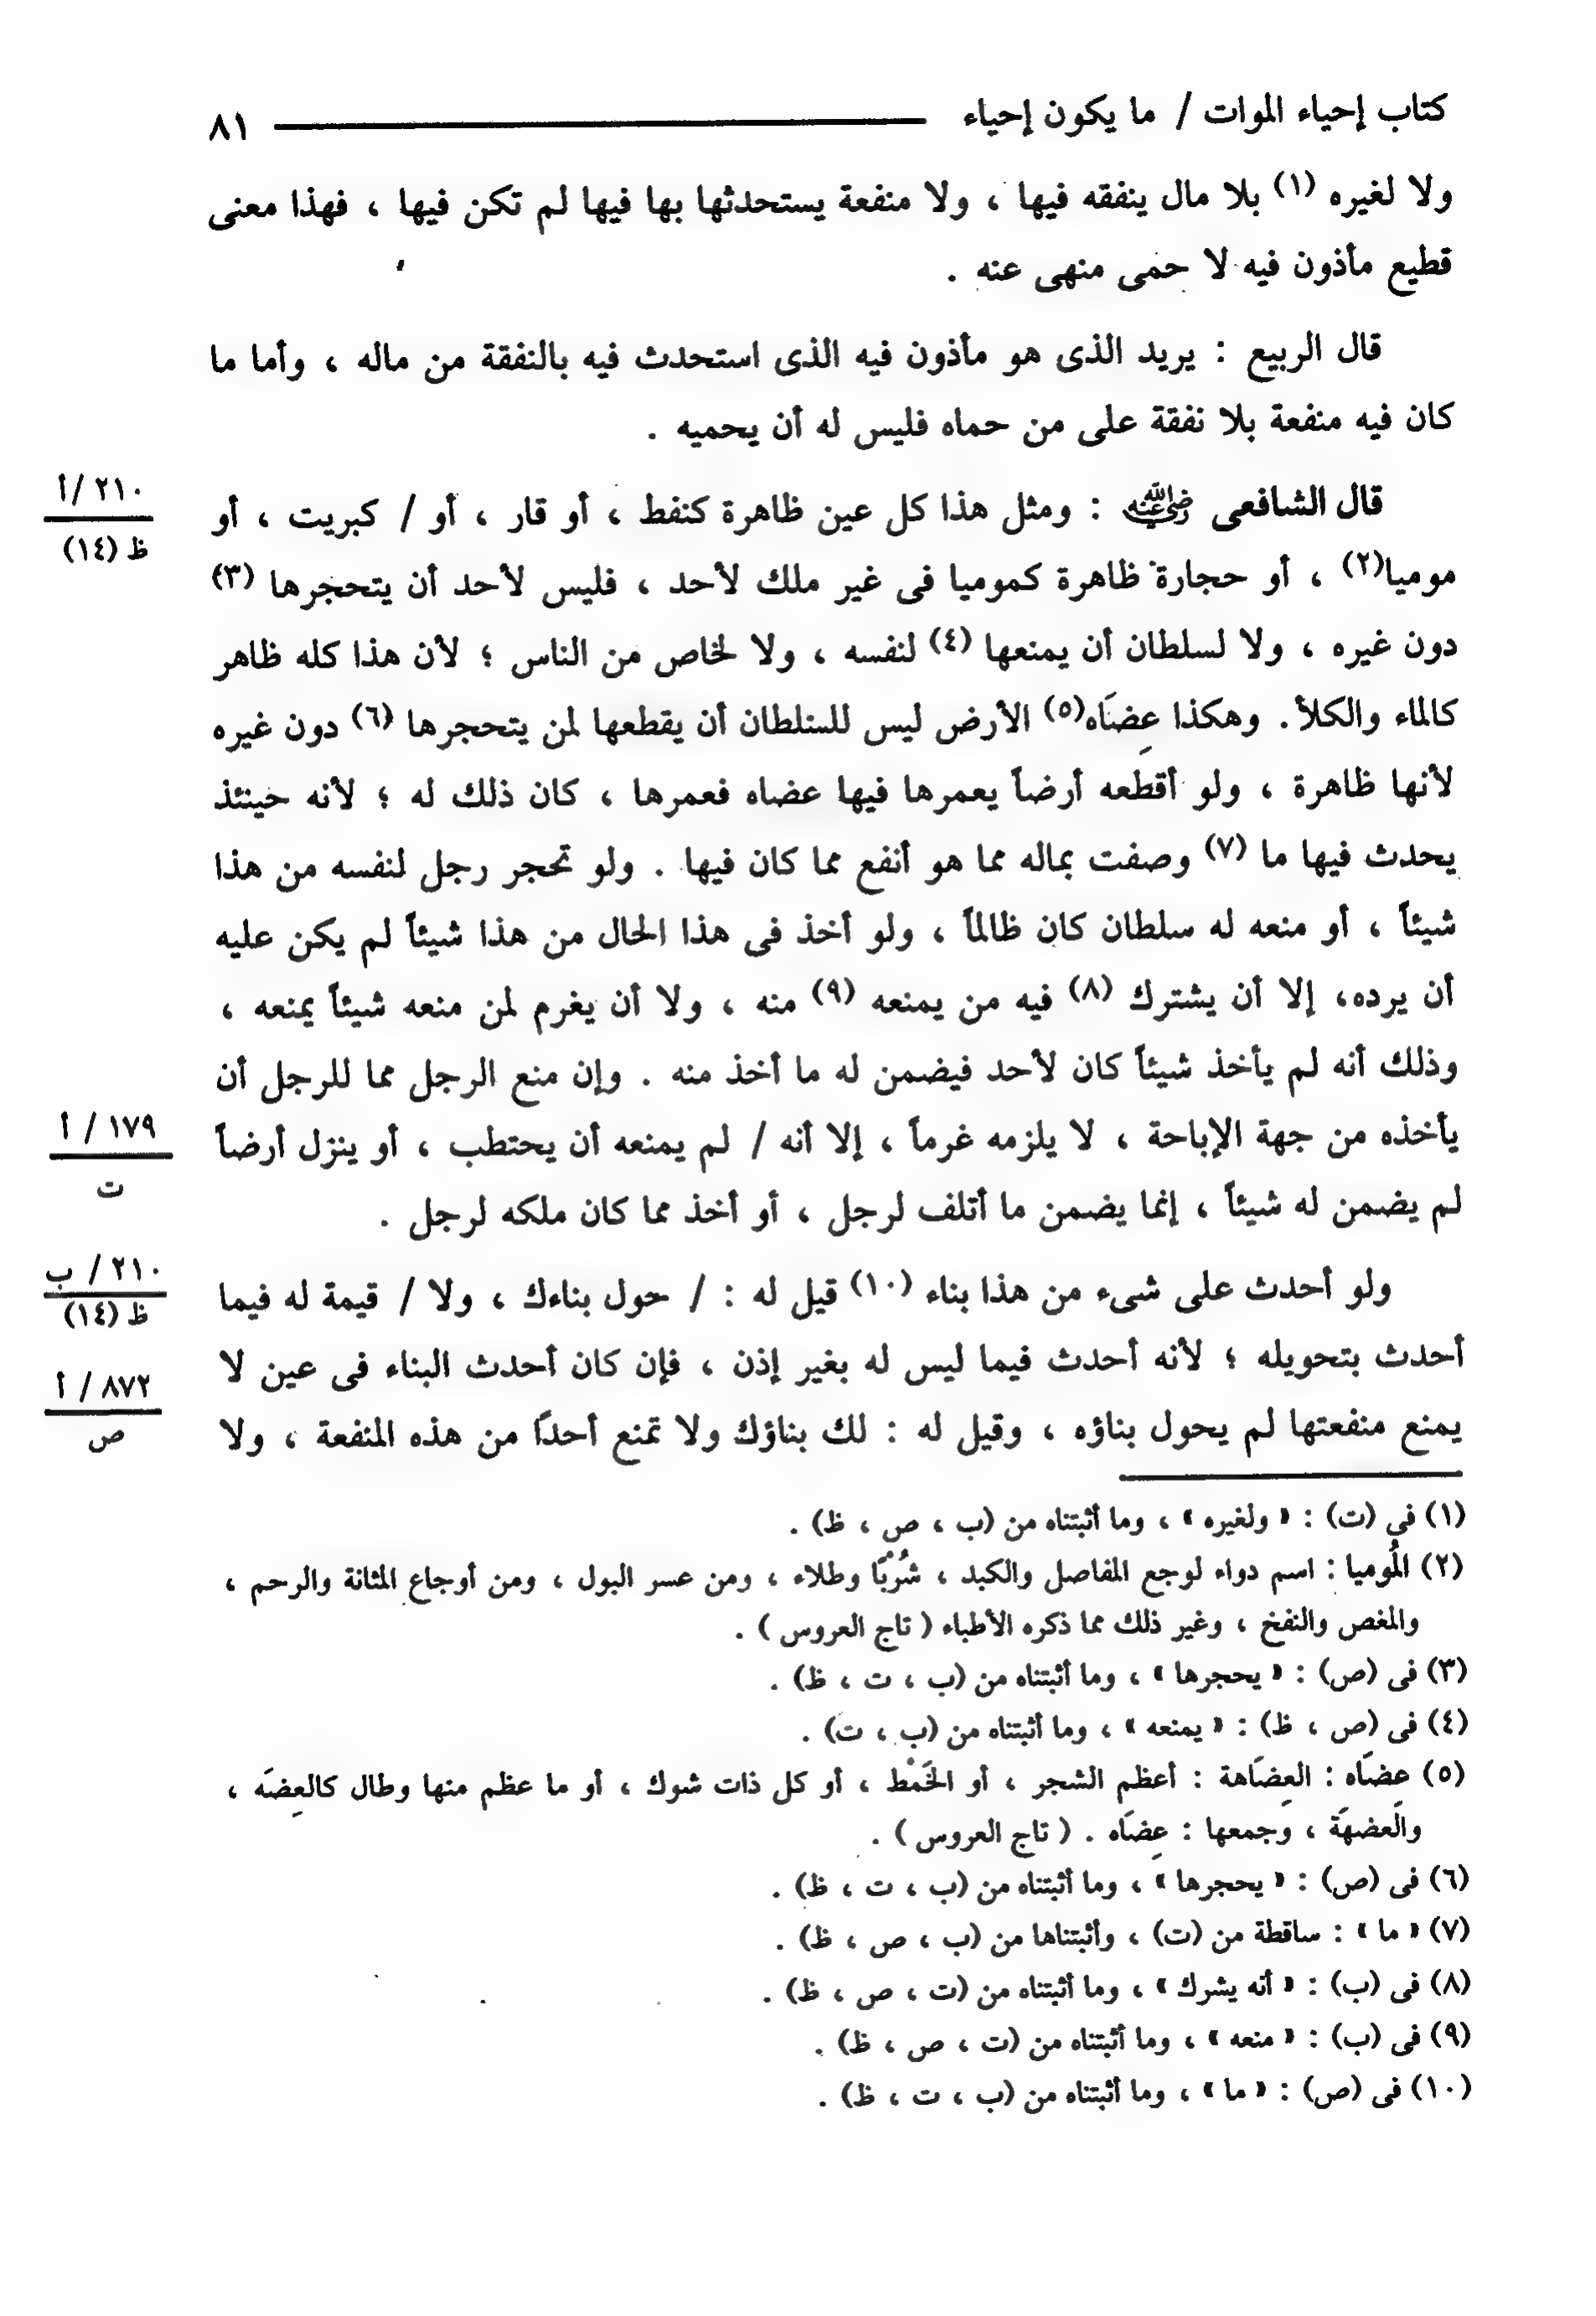 كتاب إحياء الموات / ما يكون إحياء ٨١
ولا لغيره (١) بلا مال ينفقه فيها ، ولا منفعة يستحدثها بها فيها لم تكن فيها ، فهذا معنى
قطيع مأذون فيه لا حمى منهى عنه .
قال الربيع : يريد الذى هو مأذون فيه الذى استحدث فيه بالنفقة من ماله ، وأما ما
كان فيه منفعة بلا نفقة على من حماه فليس له أن يحميه .
قال الشافعى رضي الله عنه : ومثل هذا كل عين ظاهرة كنفط ، أو قار ، أو / كبريت ، أو
٢١٠ /أ
ظ (١٤)
موميا(٢) ، أو حجارة ظاهرة كموميا فى غير ملك لأحد ، فليس لأحد أن يتحجرها (٣)
دون غيره ، ولا لسلطان أن يمنعها (٤) لنفسه ، ولا لخاص من الناس ؛ لأن هذا كله ظاهر
كالماء والكلأ. وهكذا عِضَاه(٥) الأرض ليس للسلطان أن يقطعها لمن يتحجرها (٦) دون غيره
لأنها ظاهرة ، ولو أقطعه أرضاً يعمرها فيها عضاه فعمرها ، كان ذلك له ؛ لأنه حينئذ
يحدث فيها ما (٧) وصفت بماله مما هو أنفع مما كان فيها . ولو تحجر رجل لنفسه من هذا
شيئاً ، أو منعه له سلطان كان ظالماً ، ولو أخذ فى هذا الحال من هذا شيئاً لم يكن عليه
أن يرده، إلا أن يشترك (٨) فيه من يمنعه (٩) منه ، ولا أن يغرم لمن منعه شيئاً يمنعه ،
وذلك أنه لم يأخذ شيئاً كان لأحد فيضمن له ما أخذ منه . وإن منع الرجل مما للرجل أن
يأخذه من جهة الإباحة ، لا يلزمه غرماً ، إلا أنه / لم يمنعه أن يحتطب ، أو ينزل أرضاً
١٧٩ / أ
ت
لم يضمن له شيئاً ، إنما يضمن ما أتلف لرجل ، أو أخذ مما كان ملكه لرجل .
ولو أحدث على شىء من هذا بناء (١٠) قيل له : / حول بناءك ، ولا / قيمة له فيما
٢١٠ / ب
ظ (١٤)
أحدث بتحويله ؛ لأنه أحدث فيما ليس له بغير إذن ، فإن كان أحدث البناء فى عين لا
٨٧٢ / أ
ص
يمنع منفعتها لم يحول بناؤه ، وقيل له : لك بناؤك ولا تمنع أحدًا من هذه المنفعة ، ولا
(١) فى (ت) : « ولغيره » ، وما أثبتناه من (ب ، ص ، ظ) .
(٢) المُوميا : اسم دواء لوجع المفاصل والكبد ، شُرْبًا وطلاء ، ومن عسر البول ، ومن أوجاع المثانة والرحم ،
والمغص والنفخ ، وغير ذلك مما ذكره الأطباء ( تاج العروس ) .
(٣) فى (ص) : « يحجرها » ، وما أثبتناه من (ب ، ت ، ظ) .
(٤) فى (ص ، ظ) : « يمنعه » ، وما أثبتناه من (ب ، ت) .
(٥) عِضَاه : العِضَاهة : أعظم الشجر ، أو الخَمْط ، أو كل ذات شوك ، أو ما عظم منها وطال كالعِضَه ،
والعِضهَة ، وجمعها : عِضَاه . ( تاج العروس ) .
(٦) فى (ص) : « يحجرها » ، وما أثبتناه من (ب ، ت ، ظ) .
(٧) « ما » : ساقطة من (ت) ، وأثبتناها من (ب ، ص ، ظ) .
(٨) فى (ب) : « أنه يشرك » ، وما أثبتناه من (ت ، ص ، ظ) .
(٩) فى (ب) : « منعه » ، وما أثبتناه من (ت ، ص ، ظ) .
(١٠) فى (ص) : « ما » ، وما أثبتناه من (ب ، ت ، ظ) .